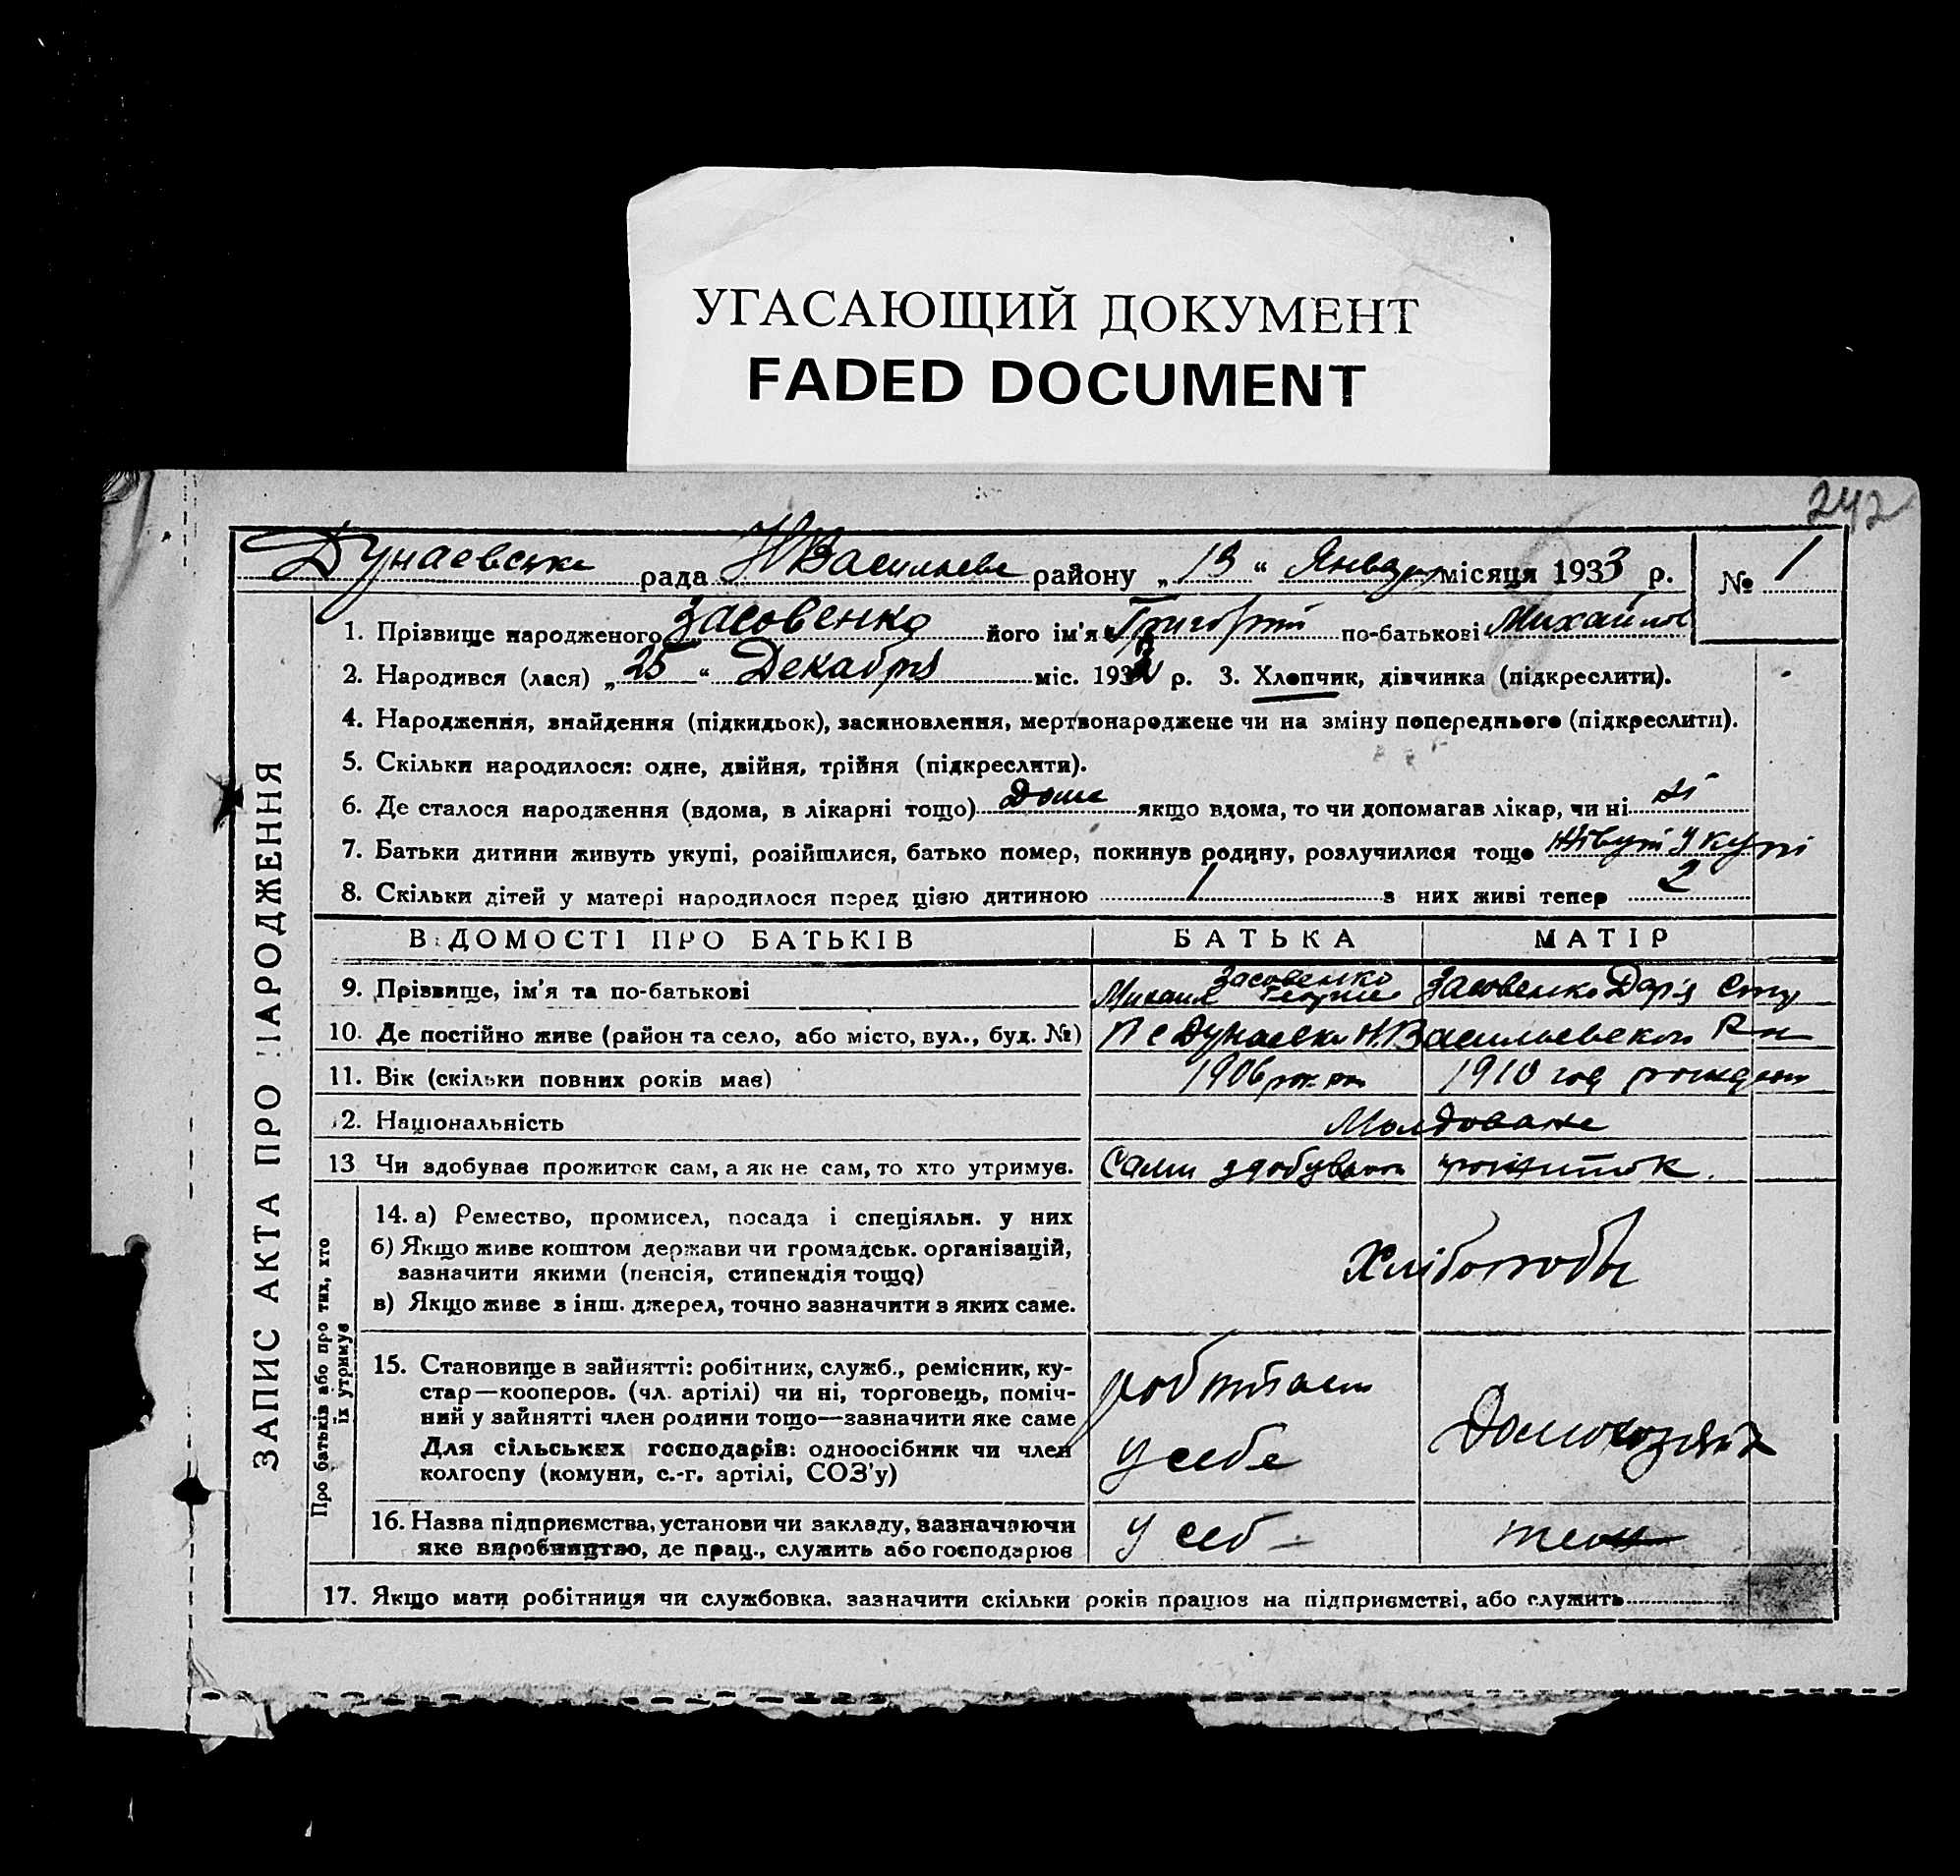 УГАСАЮЩИЙ ДОКУМЕНТ
FADED DOCUMENT
242
Дунаевська рада Н Васильеве району „13“ Января місяця 1933 р. № 1
ЗАПИС АКТА ПРО НАРОДЖЕННЯ
1. Прізвище народженого Засовенко його ім'я Григорій по-батькові Михайлов
2. Народився (лася) „25“ Декабря міс. 1932 р. 3. Хлопчик, дівчинка (підкреслити).
4. Народження, знайдення (підкидьок), засиновлення, мертвонароджене чи на зміну попереднього (підкреслити).
5. Скільки народилося: одне, двійня, трійня (підкреслити).
6. Де сталося народження (вдома, в лікарні тощо) Дома якщо вдома, то чи допомагав лікар, чи ні ні
7. Батьки дитини живуть укупі, розійшлися, батько помер, покинув родину, розлучилися тощо живуть у купі
8. Скільки дітей у матері народилося перед цією дитиною 1 з них живі тепер 2
ВІДОМОСТІ ПРО БАТЬКІВ БАТЬКА МАТІР
9. Прізвище, ім'я та по-батькові Засовенко Михаил Засовенко Дар'я
10. Де постійно живе (район та село, або місто, вул., буд. №) с Дунаевка Н.Васильевского Р-н
11. Вік (скільки повних років має) 1906 1910 год рождения
12. Національність Молдоване
13 Чи здобував прожиток сам, а як не сам, то хто утримує. Сами здобувают прожиток.
Про батьків або про тих, хто їх утримує
14. а) Ремество, промисел, посада і спеціяльн. у них
б) Якщо живе коштом держави чи громадськ. організацій,
зазначити якими (пенсія, стипендія тощо)
в) Якщо живе з інш. джерел, точно зазначити з яких саме.
Хлібороби
15. Становище в зайнятті: робітник, служб., ремісник, ку-
стар—кооперов. (чл. артілі) чи ні, торговець, поміч-
ний у зайнятті член родини тощо—зазначити яке саме
Для сільських господарів: одноосібник чи член
колгоспу (комуни, с.-г. артілі, СОЗ'у)
у себе Домохозяйка
16. Назва підприємства, установи чи закладу, зазначаючи
яке виробництво, де прац., служить або господарює
у себ
17. Якщо мати робітниця чи службовка, зазначити скільки років працює на підприємстві, або служить